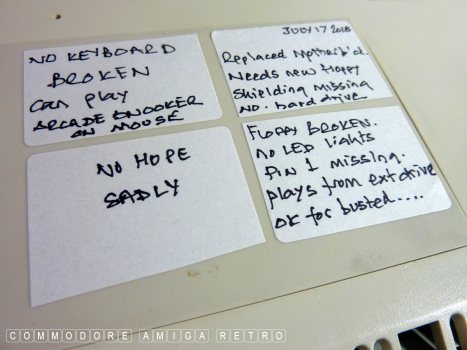 NO KEYBOARD
BROKEN
can play
ARCADE SNOOKER
ON MOUSE
JULY 17 2018
Replaced Motherb'd.
Needs new floppy
Shielding missing
NO. hard drive
NO HOPE
SADLY
FLOPPY BROKEN.
NO LED lights
PIN 1 missing.
plays from ext drive
OK for busted....
COMMODORE AMIGA RETRO